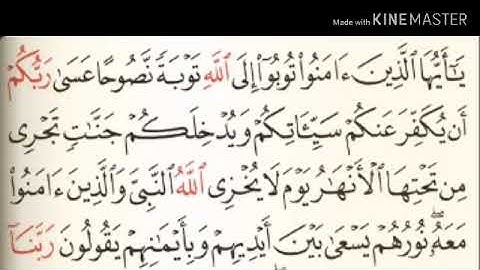 Made with KINEMASTER
يَٰٓأَيُّهَا ٱلَّذِينَ ءَامَنُواْ تُوبُوٓاْ إِلَى ٱللَّهِ تَوۡبَةٗ نَّصُوحًا عَسَىٰ رَبُّكُمۡ
أَن يُكَفِّرَ عَنكُمۡ سَيِّـَٔاتِكُمۡ وَيُدۡخِلَكُمۡ جَنَّٰتٖ تَجۡرِي
مِن تَحۡتِهَا ٱلۡأَنۡهَٰرُ يَوۡمَ لَا يُخۡزِي ٱللَّهُ ٱلنَّبِيَّ وَٱلَّذِينَ ءَامَنُواْ
مَعَهُۥۖ نُورُهُمۡ يَسۡعَىٰ بَيۡنَ أَيۡدِيهِمۡ وَبِأَيۡمَٰنِهِمۡ يَقُولُونَ رَبَّنَآ